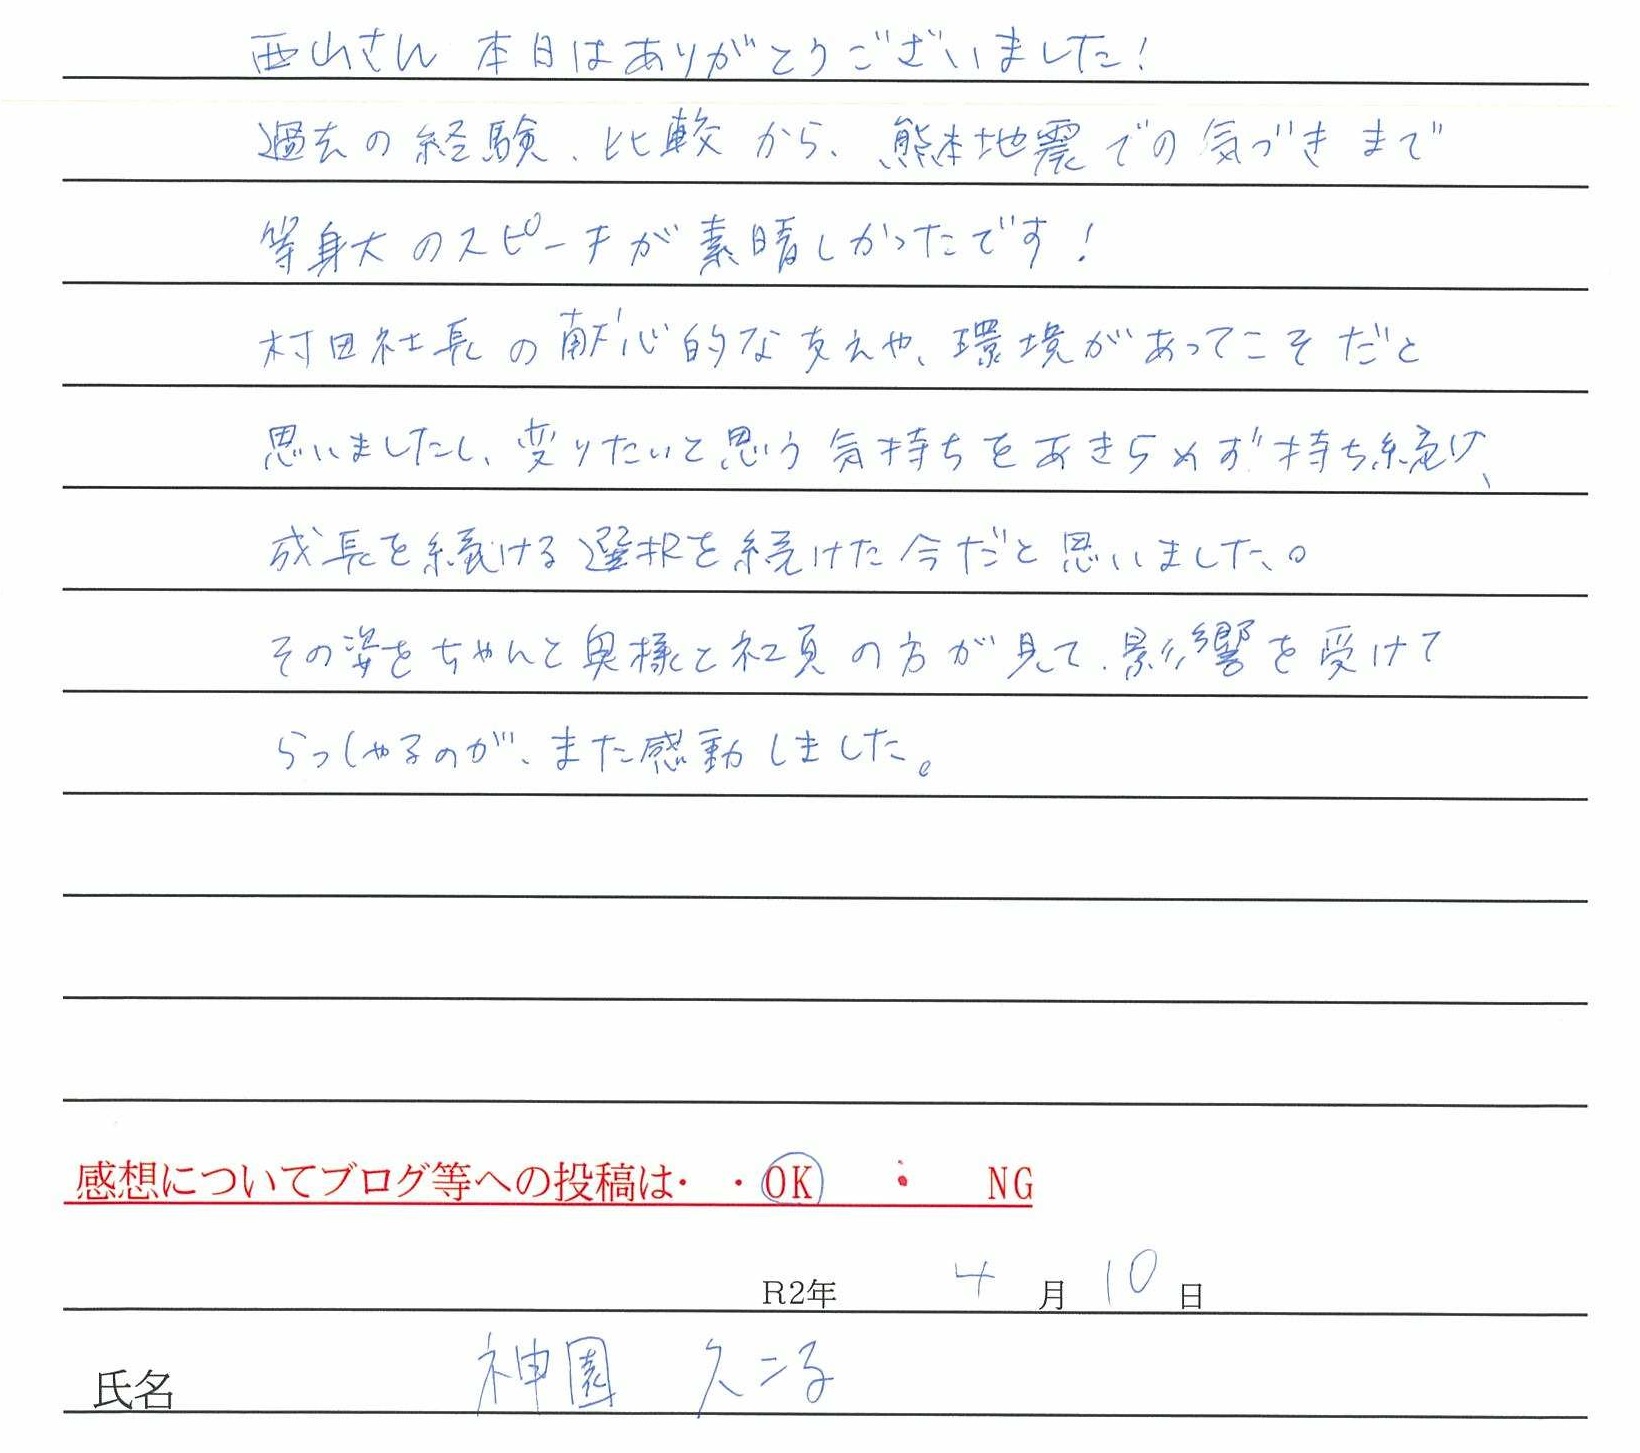 西山さん 本日はありがとうございました!
過去の経験、比較から、熊本地震での気づきまで
等身大のスピーチが素晴しかったです!
村田社長の献心的な支えや、環境があってこそだと
思いましたし、変りたいと思う気持ちをあきらめず持ち続け、
成長を続ける選択を続けた今だと思いました。
その姿をちゃんと奥様と社員の方が見て、影響を受けて
らっしゃるのが、また感動しました。
感想についてブログ等への投稿は・・OK ・ NG
R2年 4月10日
氏名 神園